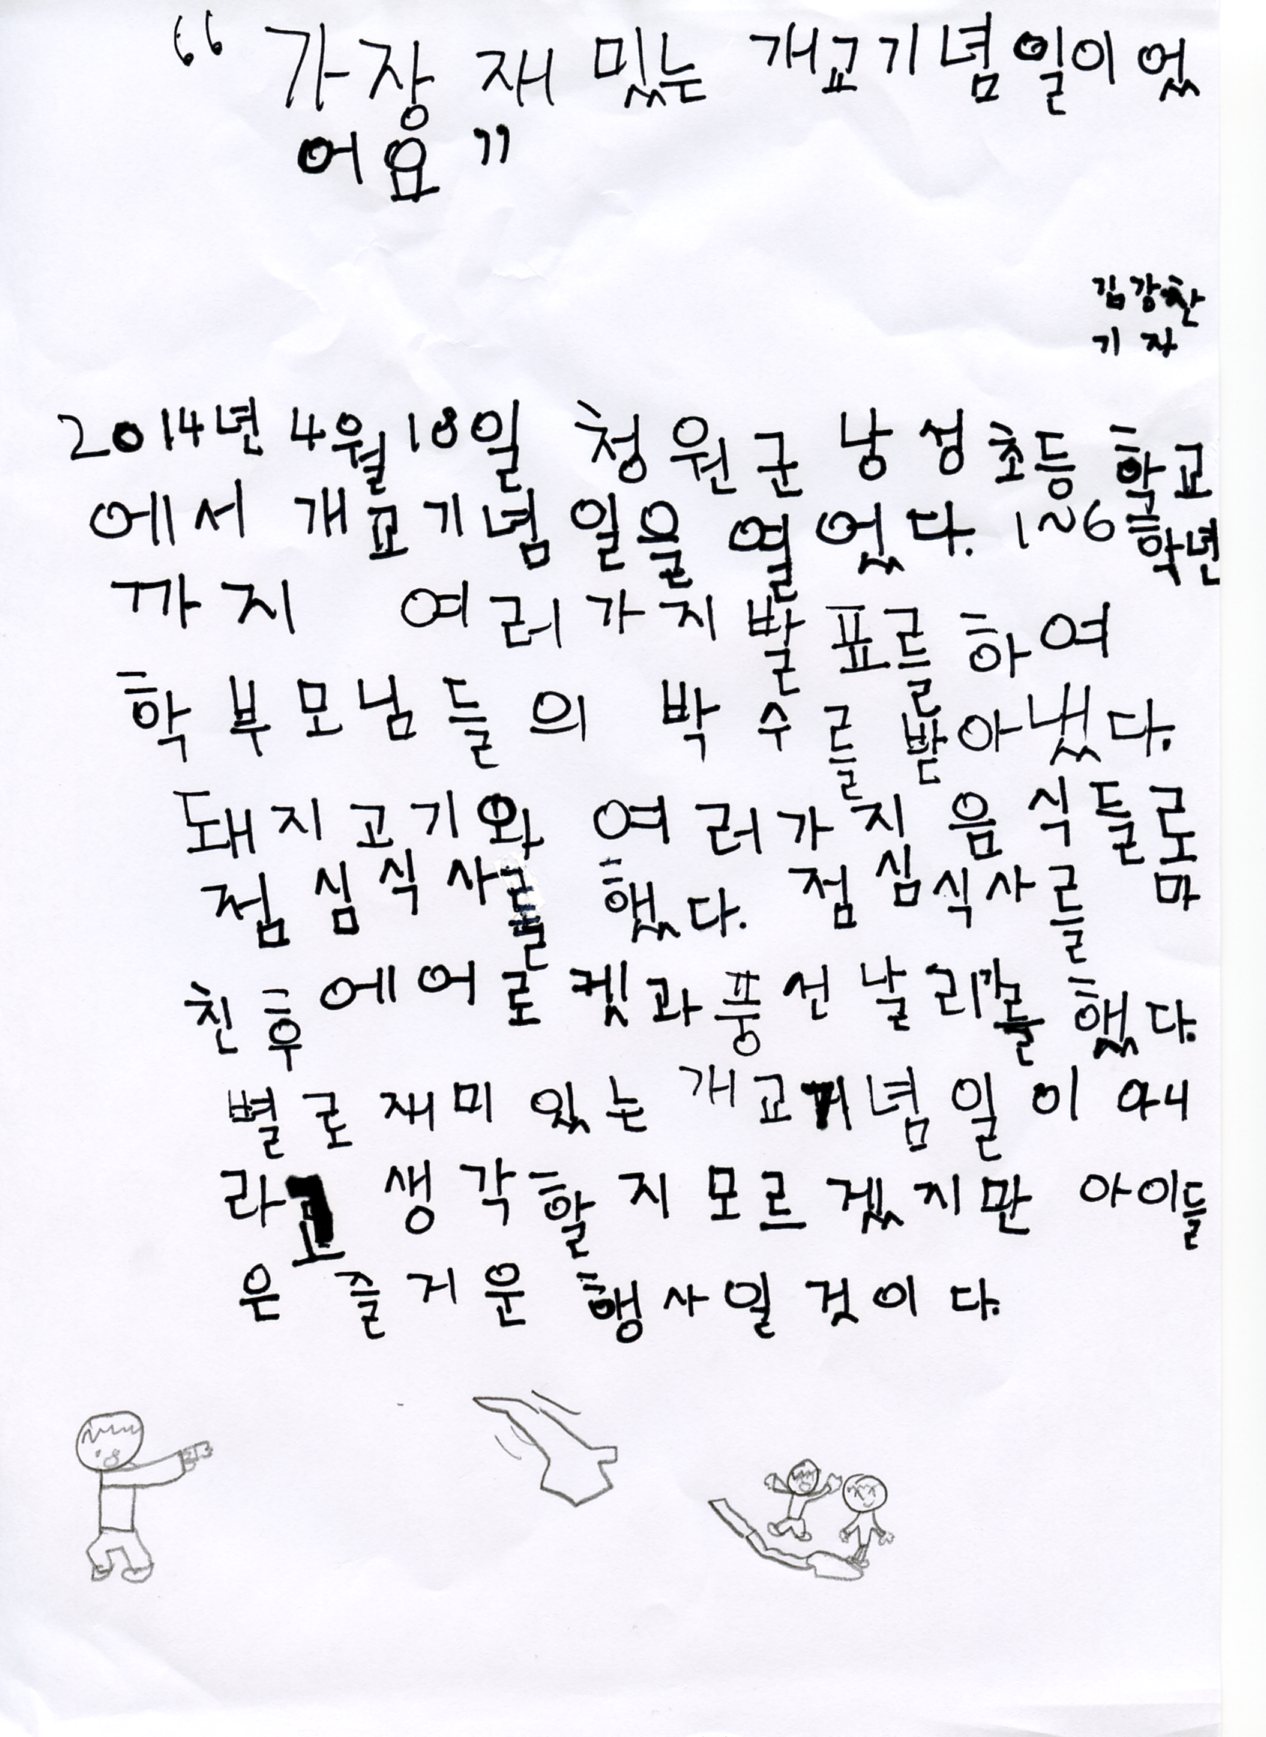 “ 가장 재밌는 개교기념일이었
어요 ”
김강찬
기자
2014년 4월 18일 청원군 낭성초등학교
에서 개교기념일을 열었다. 1~6학년
까지 여러가지 발표를 하여
학부모님들의 박수를 받아냈다.
돼지고기와 여러가지 음식들로
점심식사를 했다. 점심식사를 마
친 후 에어로켓과 풍선날리기를 했다.
별로 재미있는 개교기념일이 아니
라고 생각할지 모르겠지만 아이들
은 즐거운 행사일 것이다.